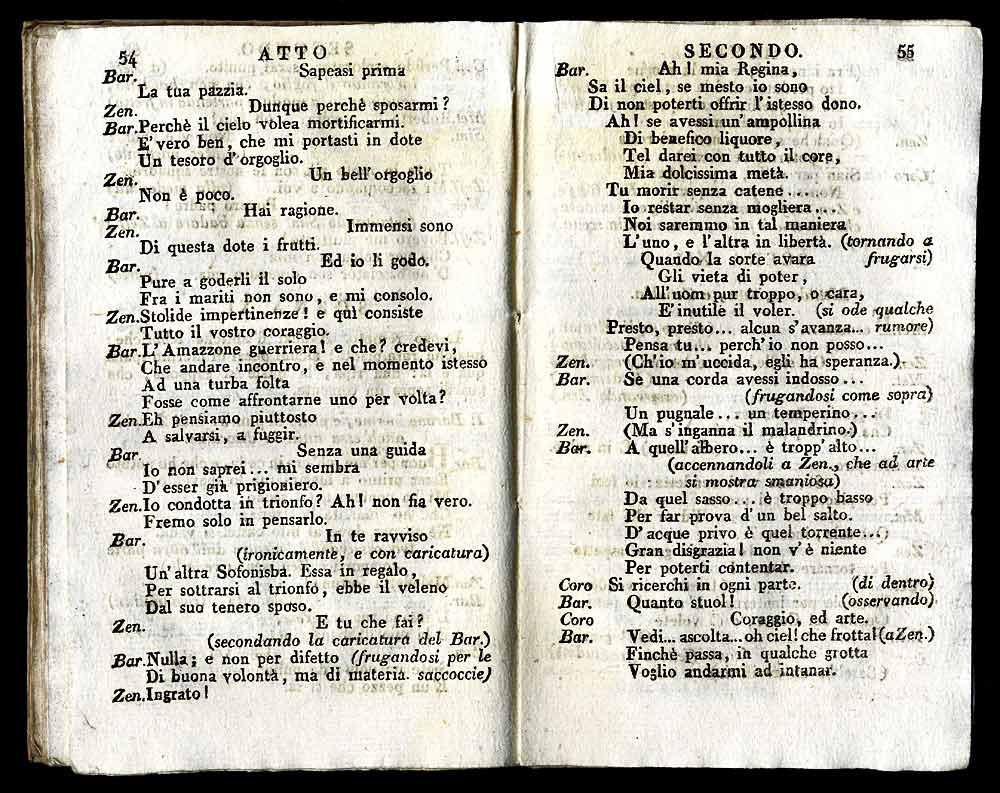 54 ATTO
Bar. Sapeasi prima
La tua pazzia.
Zen. Dunque perchè sposarmi?
Bar. Perchè il cielo volea mortificarmi.
E' vero ben, che mi portasti in dote
Un tesoro d'orgoglio.
Zen. Un bell'orgoglio
Non è poco.
Bar. Hai ragione.
Zen. Immensi sono
Di questa dote i frutti.
Bar. Ed io li godo.
Pure a goderli il solo
Fra i mariti non sono, e mi consolo.
Zen. Stolide impertinenze! e quì consiste
Tutto il vostro coraggio.
Bar. L'Amazzone guerriera! e che? credevi,
Che andare incontro, e nel momento istesso
Ad una turba folta
Fosse come affrontarne uno per volta?
Zen. Eh pensiamo piuttosto
A salvarsi, a fuggir.
Bar. Senza una guida
Io non saprei... mi sembra
D'esser già prigioniero.
Zen. Io condotta in trionfo? Ah! non fia vero.
Fremo solo in pensarlo.
Bar. In te ravviso
(ironicamente, e con caricatura)
Un'altra Sofonisba. Essa in regalo,
Per sottrarsi al trionfo, ebbe il veleno
Dal suo tenero sposo.
Zen. E tu che fai?
(secondando la caricatura del Bar.)
Bar. Nulla; e non per difetto (frugandosi per le
Di buona volontà, ma di materia. saccoccie)
Zen. Ingrato!
SECONDO. 55
Bar. Ah! mia Regina,
Sa il ciel, se mesto io sono
Di non poterti offrir l'istesso dono.
Ah! se avessi un'ampollina
Di benefico liquore,
Tel darei con tutto il core,
Mia dolcissima metà.
Tu morir senza catene...
Io restar senza mogliera...
Noi saremmo in tal maniera
L'uno, e l'altra in libertà. (tornando a
Quando la sorte avara frugarsi)
Gli vieta di poter,
All'uom pur troppo, o cara,
E' inutile il voler. (si ode qualche
Presto, presto... alcun s'avanza... rumore)
Pensa tu... perch'io non posso...
Zen. (Ch'io m'uccida, egli ha speranza.)
Bar. Se una corda avessi indosso...
(frugandosi come sopra)
Un pugnale... un temperino...
Zen. (Ma s'inganna il malandrino.)
Bar. A quell'albero... è tropp'alto...
(accennandoli a Zen., che ad arte
si mostra smaniosa)
Da quel sasso... è troppo basso
Per far prova d'un bel salto.
D'acque privo è quel torrente...
Gran disgrazia! non v'è niente
Per poterti contentar.
Coro Si ricerchi in ogni parte. (di dentro)
Bar. Quanto stuol! (osservando)
Coro Coraggio, ed arte.
Bar. Vedi... ascolta... oh ciel! che frotta! (a Zen.)
Finchè passa, in qualche grotta
Voglio andarmi ad intanar.